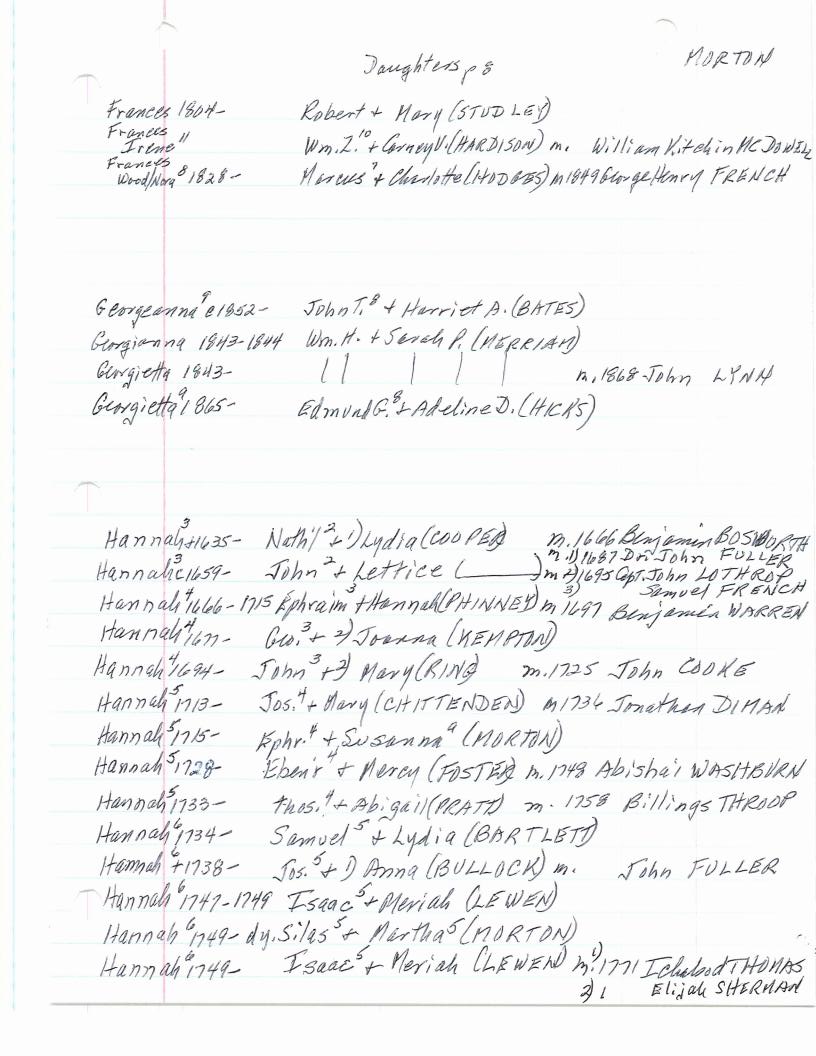 Daughters p 8 MORTON
Frances 1804- Robert + Mary (STUDLEY)
Frances
Irene " Wm. I.¹⁰ + Carney V. (HARDISON) m. William Kitchin McDOWELL
Frances
Wood/Nora⁸ 1828- Marcus⁷ + Charlotte (HODGES) m 1849 George Henry FRENCH
Georgeanna⁹ c1852- John T.⁸ + Harriet A. (BATES)
Georgianna 1843-1844 Wm. H. + Sarah P. (MERRIAM)
Georgietta 1843- || | | | m. 1868 John LYNN
Georgietta⁹ 1865- Edmund G.⁸ + Adeline D. (HICKS)
Hannah³ +1635- Nath'l² + 1) Lydia (COOPER) m. 1666 Benjamin BOSWORTH
m. 1) 1687 Dr. John FULLER
Hannah³ c1659- John² + Lettice (______) m 2) 1695 Capt. John LOTHROP
3) Samuel FRENCH
Hannah⁴ 1666-1715 Ephraim³ + Hannah (PHINNEY) m 1697 Benjamin WARREN
Hannah⁴ 1677- Geo.³ + 2) Joanna (KEMPTON)
Hannah⁴ 1694- John³ + 2) Mary (RING) m. 1725 John COOKE
Hannah⁵ 1713- Jos.⁴ + Mary (CHITTENDEN) m 1734 Jonathan DIMAN
Hannah⁵ 1715- Ephr.⁴ + Susanna⁴ (MORTON)
Hannah⁵ 1728- Eben'r⁴ + Mercy (FOSTER) m. 1748 Abishai WASHBURN
Hannah⁵ 1733- Thos.⁴ + Abigail (PRATT) m. 1758 Billings THROOP
Hannah⁶ 1734- Samuel⁵ + Lydia (BARTLETT)
Hannah⁶ +1738- Jos.⁵ + 1) Anna (BULLOCK) m. John FULLER
Hannah⁶ 1747-1749 Isaac⁵ + Meriah (LEWEN)
Hannah⁶ 1749- dy. Silas⁵ + Martha⁵ (MORTON)
Hannah⁶ 1749- Isaac⁵ + Meriah (LEWEN) m. 1) 1771 Ichabod THOMAS
2) Elijah SHERMAN